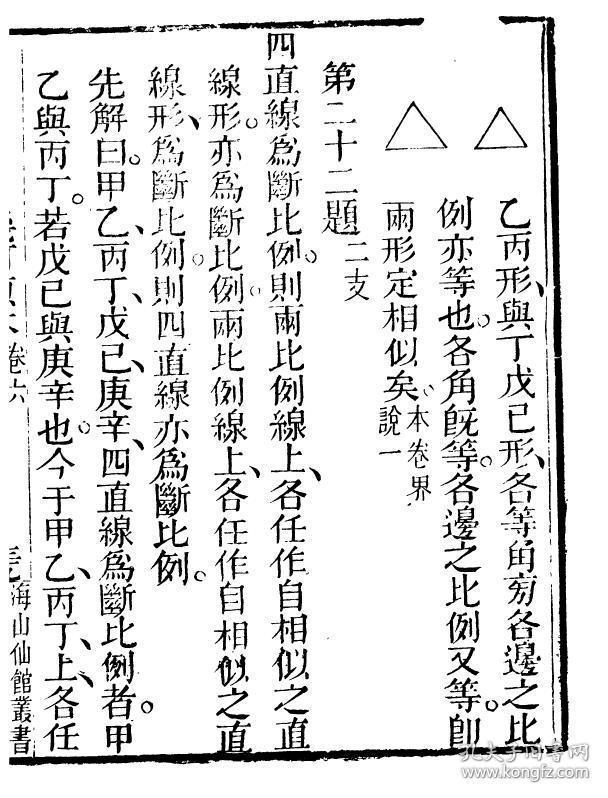 乙丙形、與丁戊己形、各等角旁各邊之比
例亦等也。各角旣等。各邊之比例又等。卽
兩形定相似矣。本卷界
說一
第二十二題二支
四直線爲斷比例。則兩比例線上、各任作自相似之直
線形。亦爲斷比例。兩比例線上、各任作自相似之直
線形、爲斷比例。則四直線亦爲斷比例。
先解曰。甲乙、丙丁、戊己、庚辛、四直線爲斷比例者。甲
乙與丙丁。若戊己與庚辛也。今于甲乙、丙丁上、各任
卷六
海山仙館叢書
孔夫子旧书网
www.kongfz.com